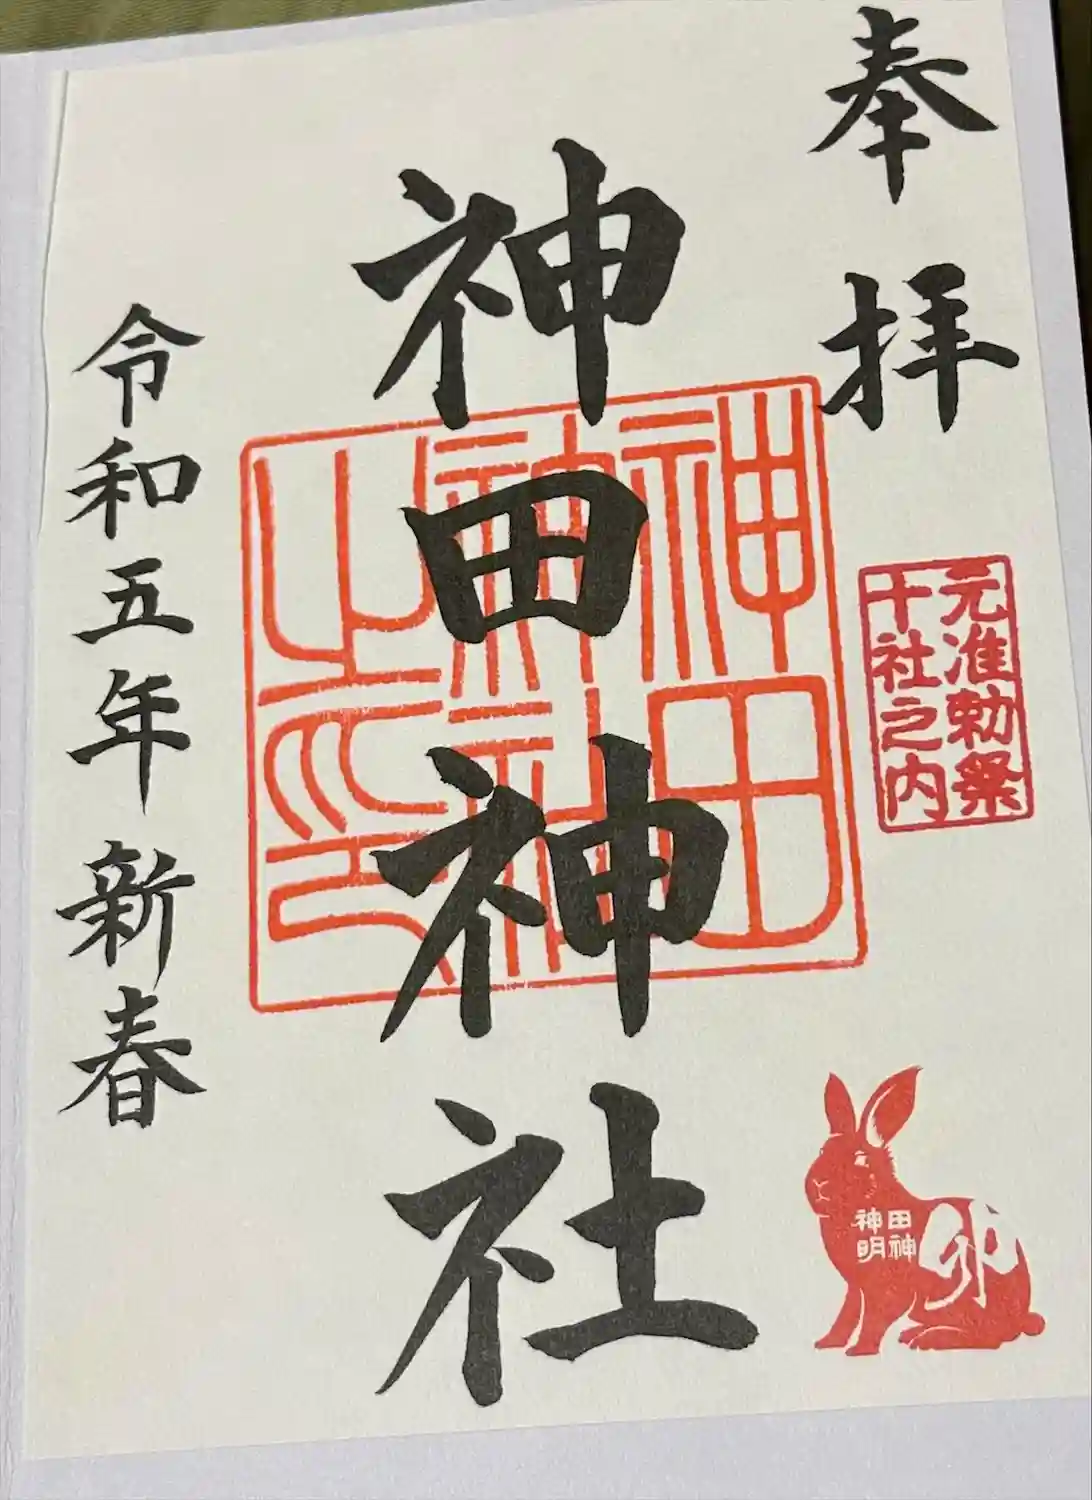 奉拝
元准勅祭
十社之内
神田神社
神田
神社
之印
令和五年新春
卯
田神
神明